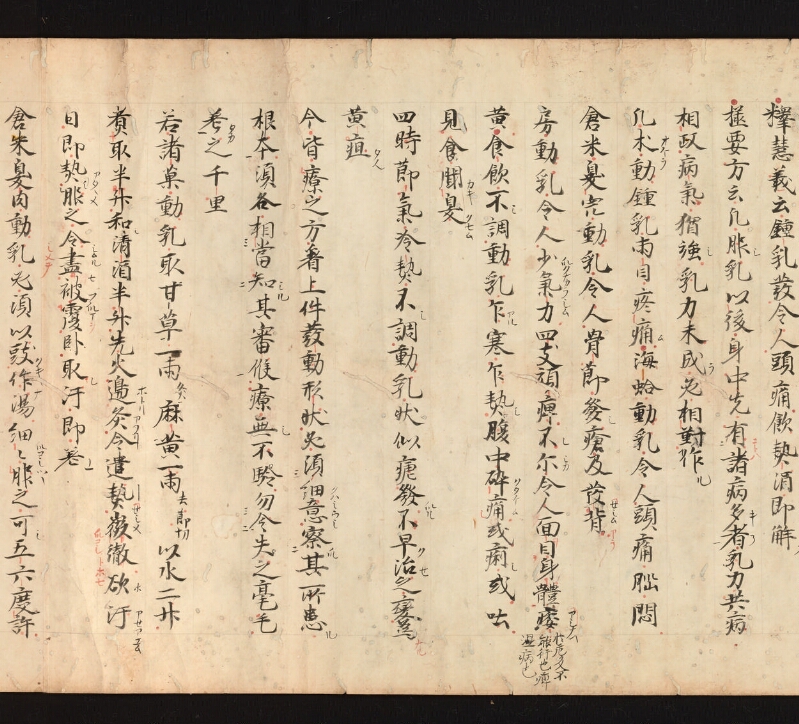 釋慧義云鍾乳發令人頭痛飲熱酒即解
極要方云凡服乳以後身中先有諸病多者乳力共病
相敵病氣猶強乳力未成先相對作
凡朮動鍾乳必目疼痛海蛤動乳令人頭痛𦙄悶
倉米臭完動乳令人骨節發瘡及發背
房動乳令人少氣力四支頑痺不尓令人面目身體痿
黄食飲不調動乳乍寒乍熱腹中碎痛或痢或吐
見食聞臭
四時節氣冷熱不調動乳狀似瘧發不早治之變為
黄疸
今皆療之方看上件發動形狀必須細意察其所患
根本須各相當知其審候療無不驗勿令失之毫毛
差之千里
若諸菓動乳取甘草一兩麻黄一兩去節切以水二升
煑取半升和清酒半升先火邊灸令遣熱徹欲汗
日即熱服之令盡被覆卧取汗即差
倉朱臭肉動乳必須以豉作湯細〻服之可五六度許